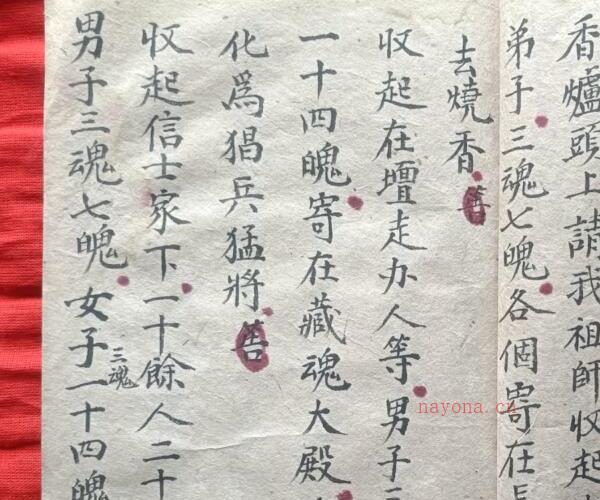 香爐頭上請我祖師收起
弟子三魂七魄各個寄在長
去燒香 善
收起在壇走办人等男子三
一十四魄寄在藏魂大殿
化為猖兵猛將 善
收起信士家下一十餘人二十
男子三魂七魄女子三魂一十四魄
nayona.cn